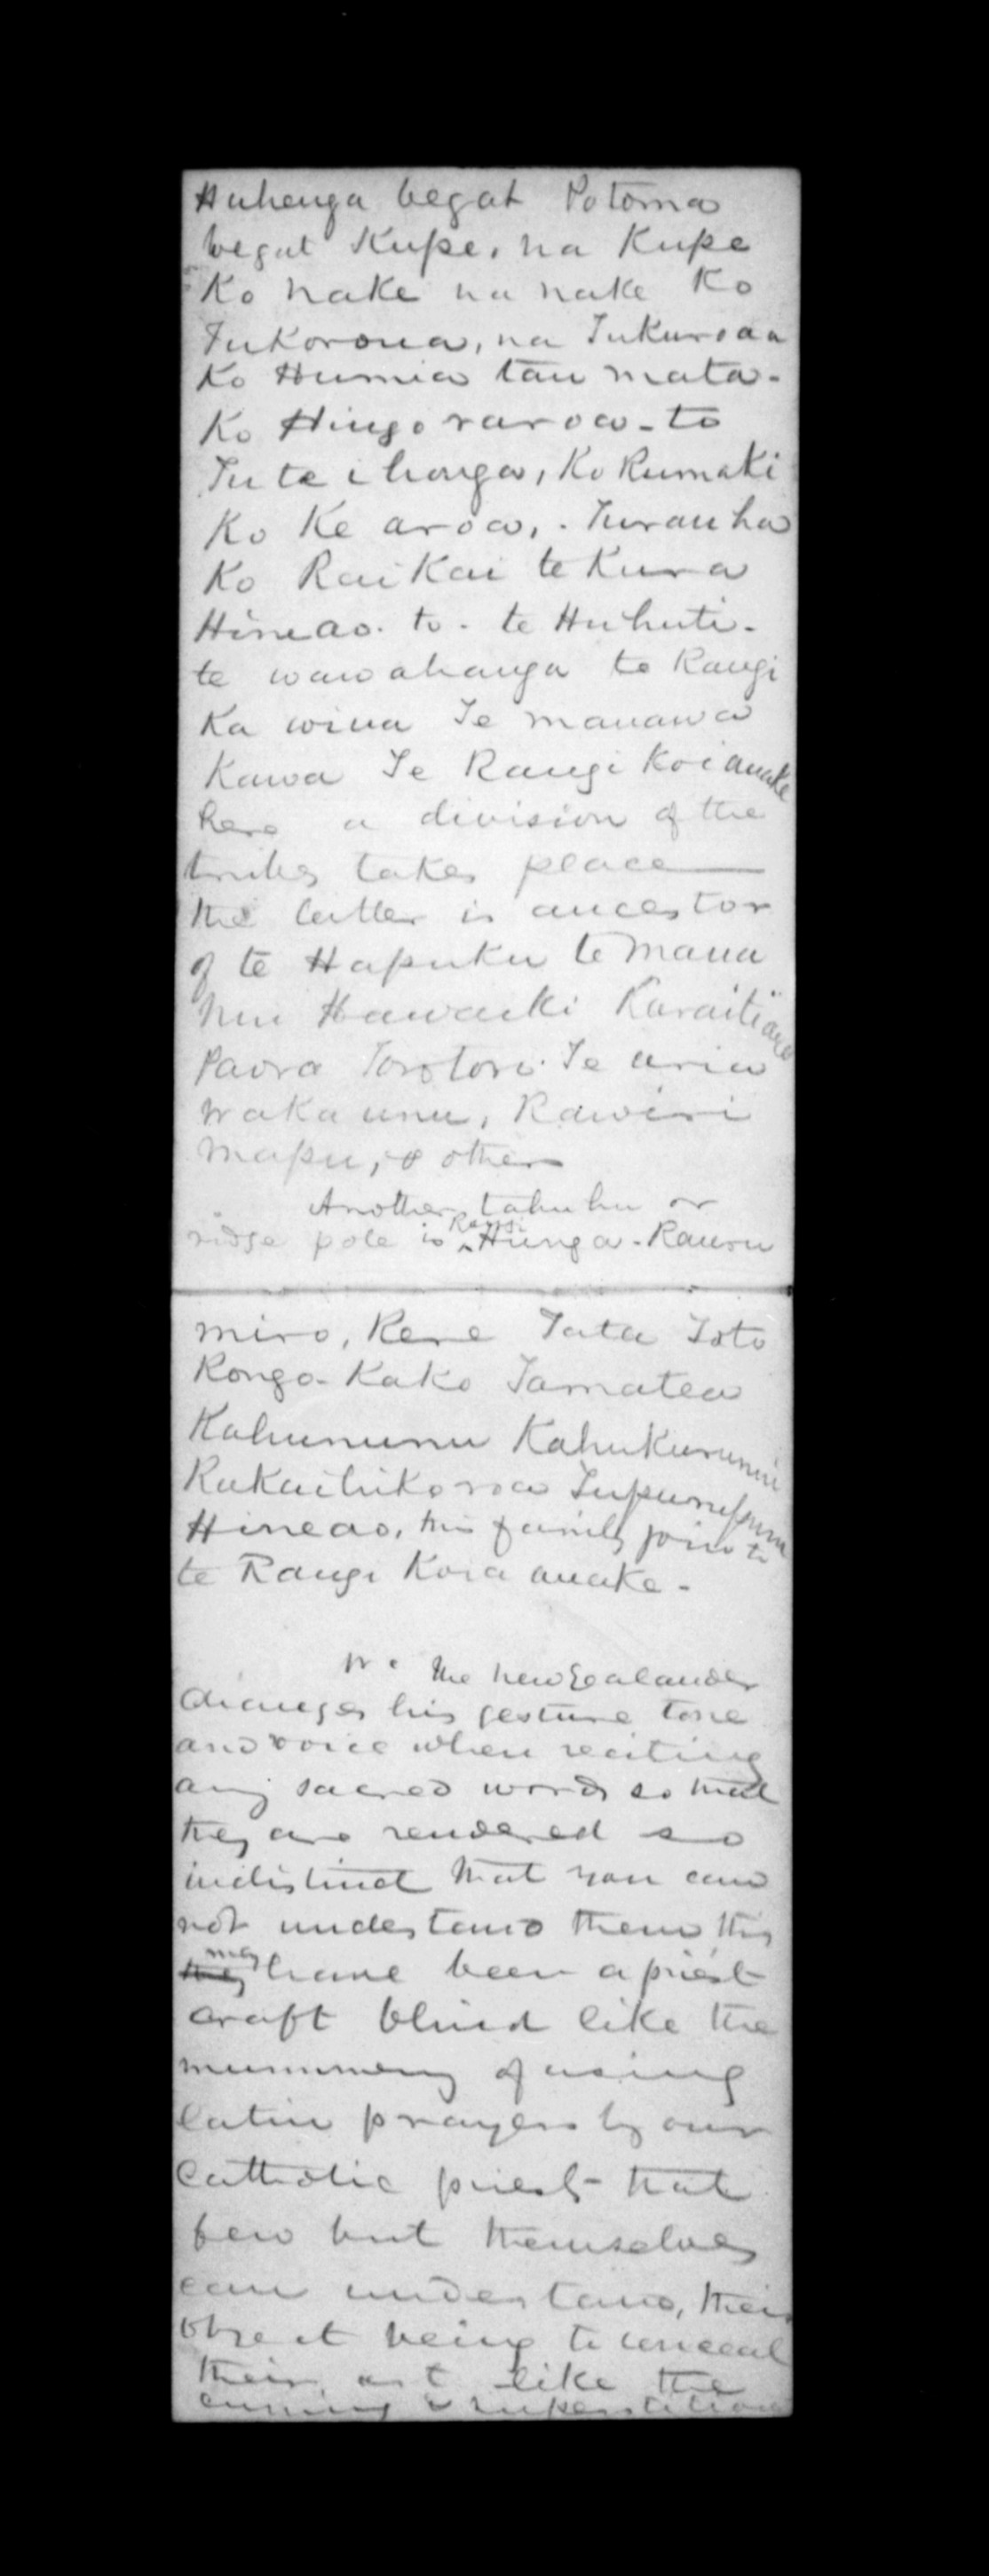 Huhenga begat Potoma
begat Kupe, na Kupe
Ko nake na nake Ko
Tukoroua, na Tukuroaa
Ko Humia tau mata-
Ko Hingo raroa - to
Tu te ihonga, Ko Rumaki
Ko Ke aroa, . Turauha
Ko Rai Kai te Kura
Hineao. to. te Huhuti-
te waw ahanga te Rangi
Ka wiua Te manawa
Kawa Te Rangi Koianake
here a division of the
tribes takes place
the latter is ancestor
of te Hapuku te Mana
Hawaiki Karaitiana
Paora Torotoro. Te aria
Waka unu, Rawiri
Mapu, & others
Another tahuhu or
ridge pole is Rangi Hunga - Rauru
miro, Rere Tata Toto
Rongo-Kako Tamatea
Kahununu Kahukuranui
Rakaihikoroa Tupurupuru
Hineao, this family join to
te Rangi Koia anake -
The New Zealander
changes his gesture tone
and voice when reciting
any sacred words so that
they are rendered so
indistinct that you can
not understand them this
may have been a priest
craft blind like the
mummery of using
latin prayers by our
catholic priests that
few but themselves
can understand, their
object being to conceal
their art like the
cunning & superstitious